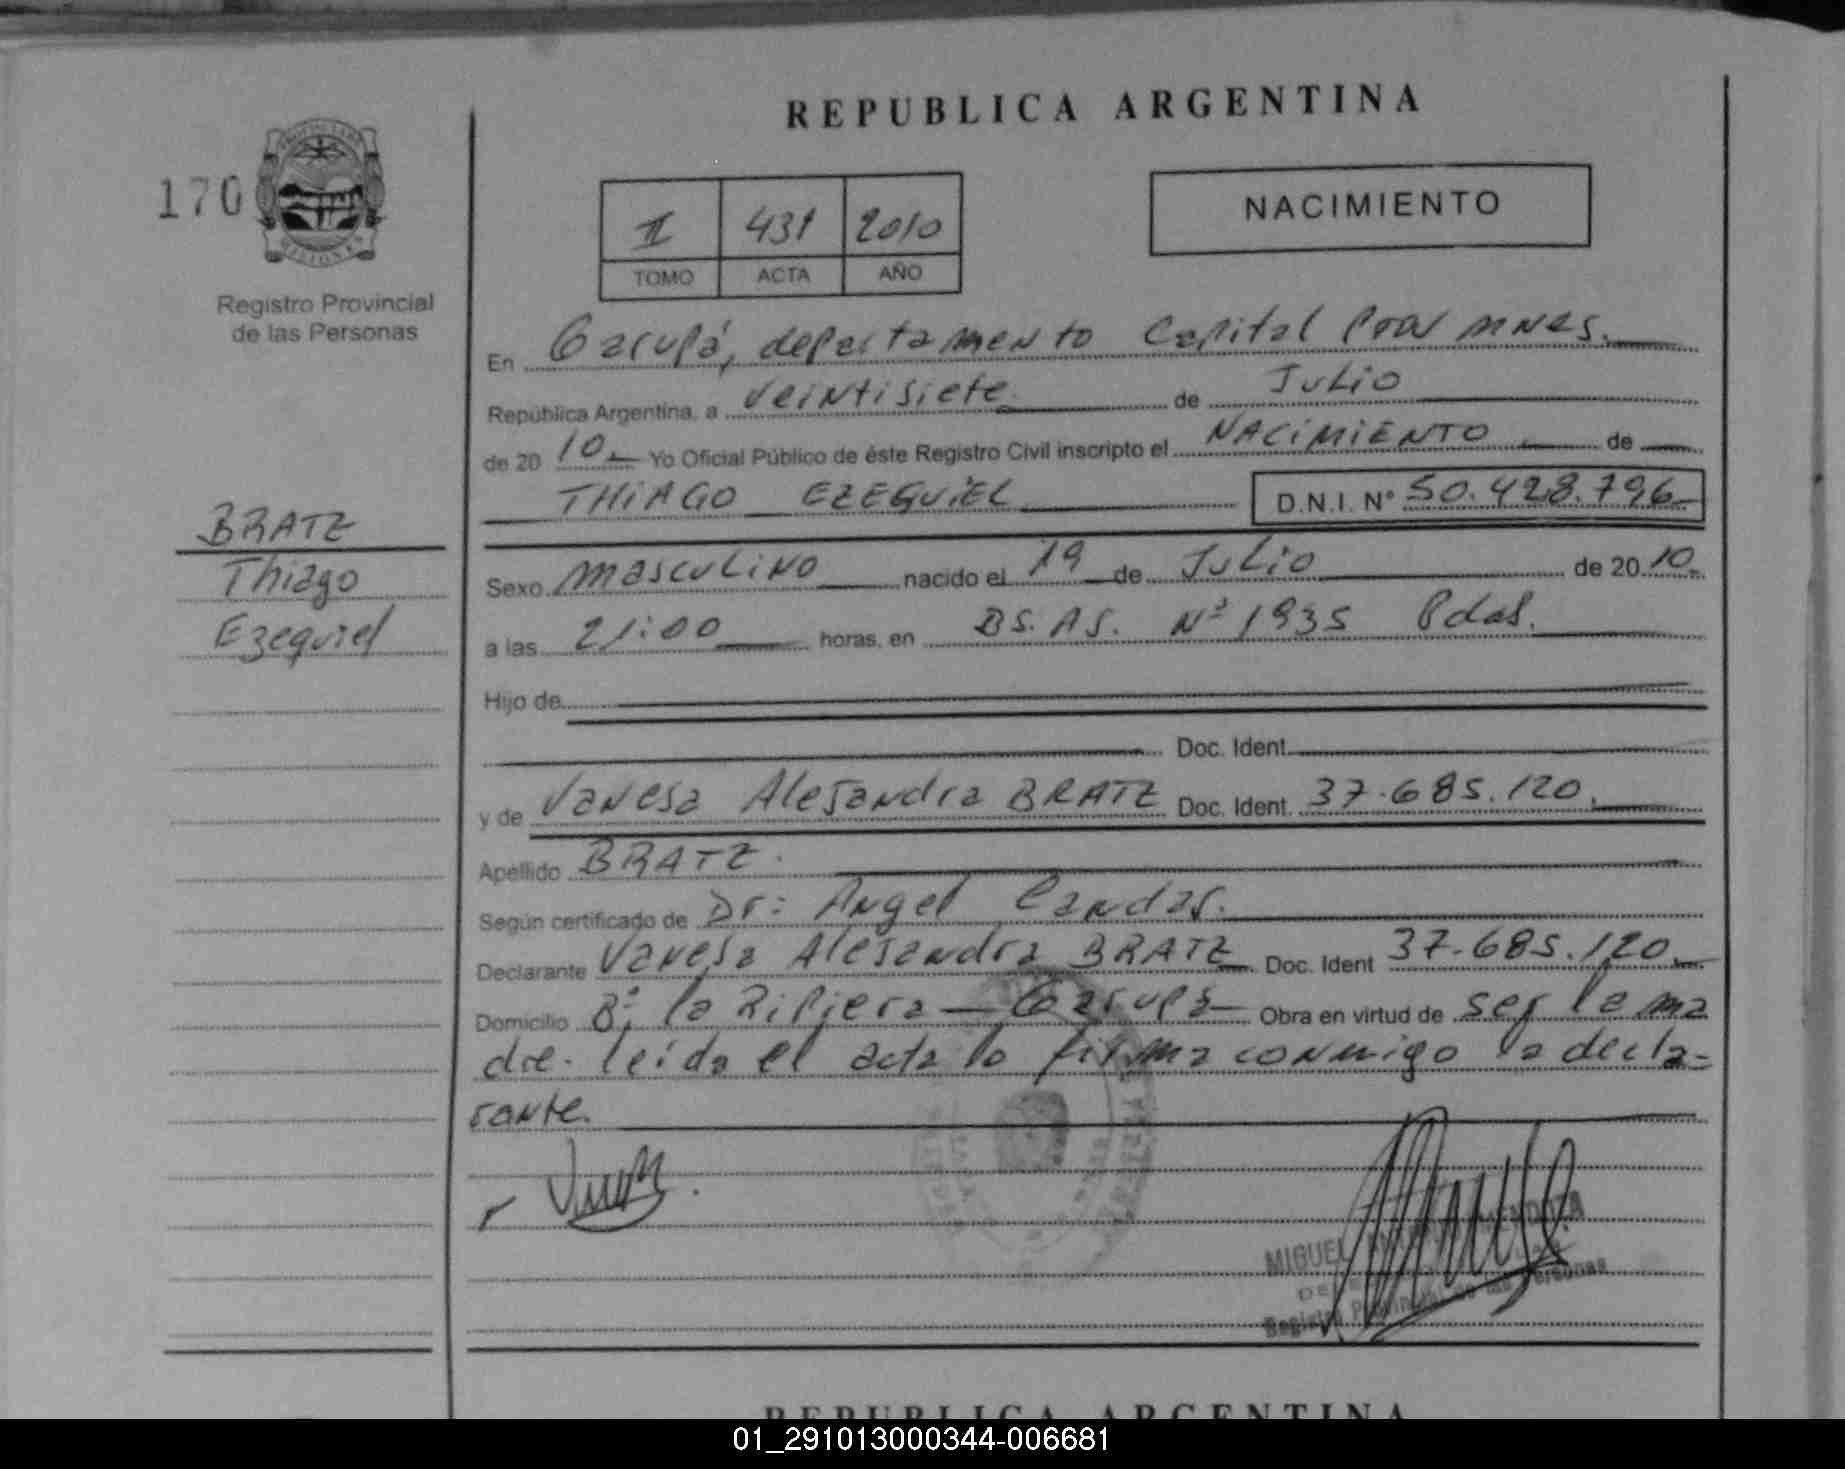 REPUBLICA ARGENTINA
170
PROVINCIA DE
MISIONES
Registro Provincial
de las Personas
431 2010
TOMO ACTA AÑO
NACIMIENTO
En Garupá, departamento Capital Pcia Mnes.
República Argentina, a veintisiete de Julio
de 20 10 Yo Oficial Público de éste Registro Civil inscripto el NACIMIENTO de
THIAGO EZEQUIEL D.N.I. Nº 50.428.796
BRATZ
Thiago
Ezequiel
Sexo masculino nacido el 19 de Julio de 20 10
a las 21:00 horas, en BS. AS. Nº 1935 Pdas.
Hijo de
Doc. Ident.
y de Vanesa Alejandra BRATZ Doc. Ident. 37.685.120.
Apellido BRATZ.
Según certificado de Dr: Angel Candas.
Declarante Vanesa Alejandra BRATZ Doc. Ident 37.685.120.
Domicilio Bº la Ribiera - Garupá Obra en virtud de ser la ma
dre. leida el acta la firma conmigo la decla-
rante.
MIGUEL MENDOZA
Registro Provincial de las Personas
REPUBLICA ARGENTINA
01_291013000344-006681